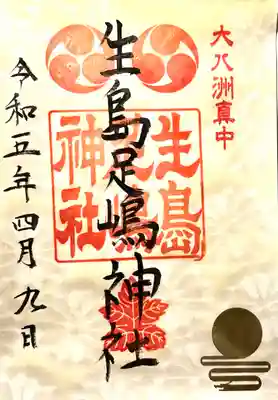 大八洲真中
生島足嶋神社
生島
神社
令和五年四月九日